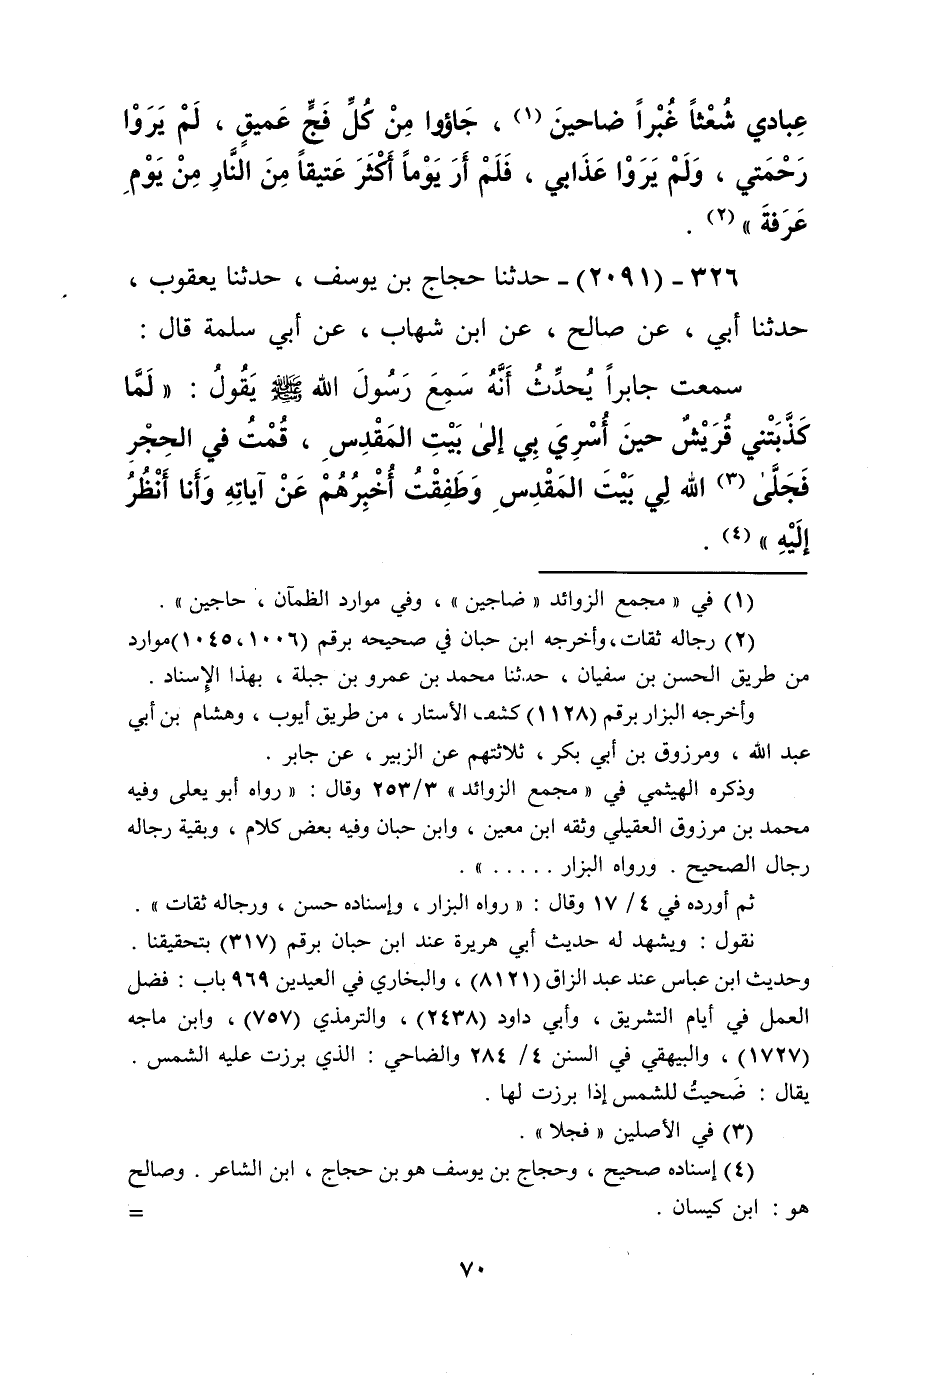 عِبادي شُعْثاً غُبْراً ضاحينَ (١) ، جَاؤوا مِنْ كُلِّ فَجٍّ عَميقٍ ، لَمْ يَرَوْا
رَحْمَتي ، وَلَمْ يَرَوْا عَذَابي ، فَلَمْ أَرَ يَوْماً أَكْثَرَ عَتيقاً مِنَ النَّارِ مِنْ يَوْمِ
عَرَفَةَ » (٢) .
٣٢٦ - (٢٠٩١) - حدثنا حجاج بن يوسف ، حدثنا يعقوب ،
حدثنا أبي ، عن صالح ، عن ابن شهاب ، عن أبي سلمة قال :
سمعت جابراً يُحدِّثُ أَنَّهُ سَمِعَ رَسُولَ الله ﷺ يَقُولُ : « لَمَّا
كَذَّبَتْني قُرَيْشٌ حينَ أُسْرِيَ بِي إلىٰ بَيْتِ المَقْدِسِ ، قُمْتُ في الحِجْرِ
فَجَلَّىٰ (٣) الله لِي بَيْتَ المَقْدِسِ وَطَفِقْتُ أُخْبِرُهُمْ عَنْ آياتِهِ وَأَنا أَنْظُرُ
إلَيْهِ » (٤) .
(١) في « مجمع الزوائد « ضاجين » ، وفي موارد الظمآن ، حاجين » .
(٢) رجاله ثقات، وأخرجه ابن حبان في صحيحه برقم (١٠٠٦، ١٠٤٥) موارد
من طريق الحسن بن سفيان ، حدثنا محمد بن عمرو بن جبلة ، بهذا الإسناد .
وأخرجه البزار برقم (١١٢٨) كشف الأستار ، من طريق أيوب ، وهشام بن أبي
عبد الله ، ومرزوق بن أبي بكر ، ثلاثتهم عن الزبير ، عن جابر .
وذكره الهيثمي في « مجمع الزوائد » ٢٥٣/٣ وقال : « رواه أبو يعلى وفيه
محمد بن مرزوق العقيلي وثقه ابن معين ، وابن حبان وفيه بعض كلام ، وبقية رجاله
رجال الصحيح . ورواه البزار ..... » .
ثم أورده في ٤/ ١٧ وقال : « رواه البزار ، وإسناده حسن ، ورجاله ثقات » .
نقول : ويشهد له حديث أبي هريرة عند ابن حبان برقم (٣١٧) بتحقيقنا .
وحديث ابن عباس عند عبد الزاق (٨١٢١) ، والبخاري في العيدين ٩٦٩ باب : فضل
العمل في أيام التشريق ، وأبي داود (٢٤٣٨) ، والترمذي (٧٥٧) ، وابن ماجه
(١٧٢٧) ، والبيهقي في السنن ٤/ ٢٨٤ والضاحي : الذي برزت عليه الشمس .
يقال : ضَحيتُ للشمس إذا برزت لها .
(٣) في الأصلين « فجلا » .
(٤) إسناده صحيح ، وحجاج بن يوسف هو بن حجاج ، ابن الشاعر . وصالح
هو : ابن كيسان . =
٧٠